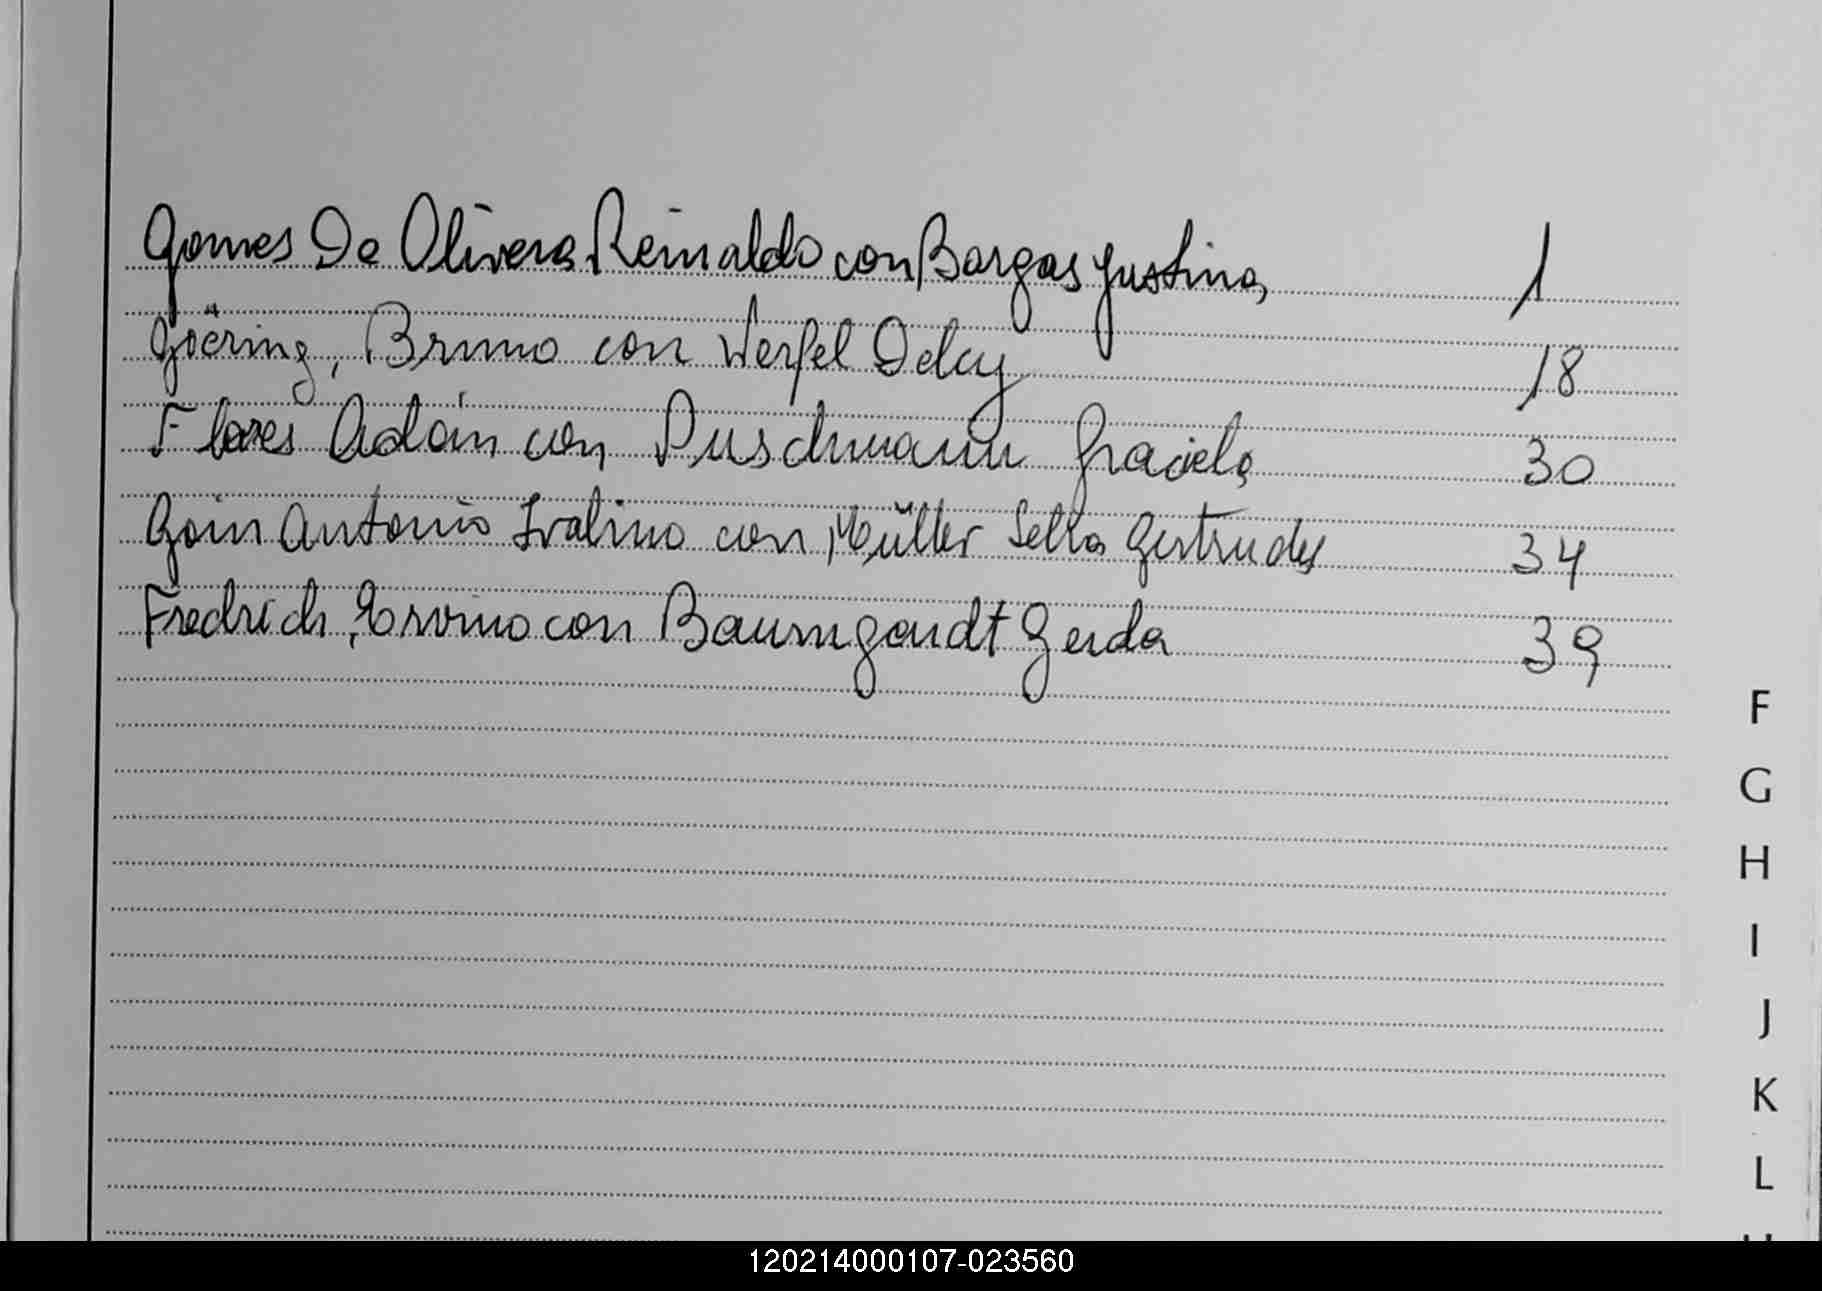 Gomes De Olivera Reinaldo con Bargas Justina 1
Göering, Bruno con Werfel Delcy 18
Flores Adán con Puschmann Graciela 30
Goin Antonio Ivalino con Müller Sella Gertrudes 34
Fredrich, Ervino con Baumgardt Gerda 39
F
G
H
I
J
K
L
120214000107-023560